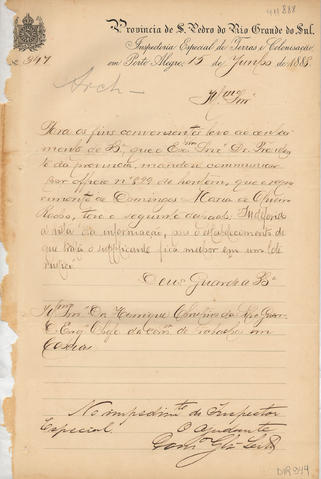 411888
Provincia de S. Pedro do Rio Grande do Sul.
Inspectoria Especial de Terras e Colonisação
em Porto Alegre, 15 de Junho de 1888.
Nº 947
Arch
Illmo Snr
Para os fins convenientes levo ao conheci
mento de Sª que o Exmo Snr Dr. Presiden
te da provincia, mandou communicar
por officio nº 822 de hontem, que o reque
rimento de Domingos Maria de
teve o seguinte despacho: Indeferido
á vista da informação, pois estabelecimento de
que trata o supplicante fica melhor em um lote
rustico
Deus Guarde a Sª
Illmo Snr Dr. Henrique Christino da
D. Engº Chefe da comm de trabalhos em
Caxias
No impedimto do Inspector
Especial.
O Ajudante
DIR 944